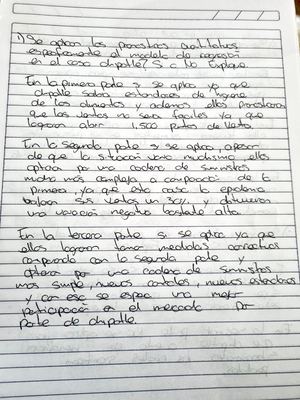 1) Se aplican los pronosticos cuantitativos
especificamente el modelo de regresión
en el caso chipotle? Si o No Explique
En la primera parte si se aplica ya que
chipotle sabía estandares de higiene
de los alimentos y ademas ellos pronosticaron
que las ventas no sera faciles ya que
lograron abrir 1,500 puntos de Venta.
En la segunda parte si se aplica, a pesar
de que la situación varió muchisimo, ellos
optaron por una cadena de suministros
mucho mas compleja a comparación de la
primera, ya que en este caso la epidemia
bajaron sus ventas un 30%, y obtuvieron
una variación negativa bastante alta.
En la tercera parte si se aplica ya que
ellos lograron tomar medidas correctivas
comparando con la segunda parte y
optaron por una cadena de suministros
mas simple, nuevos controles, nuevos estandares
y con eso se espera una mejor
participación en el mercado por
parte de chipotle.